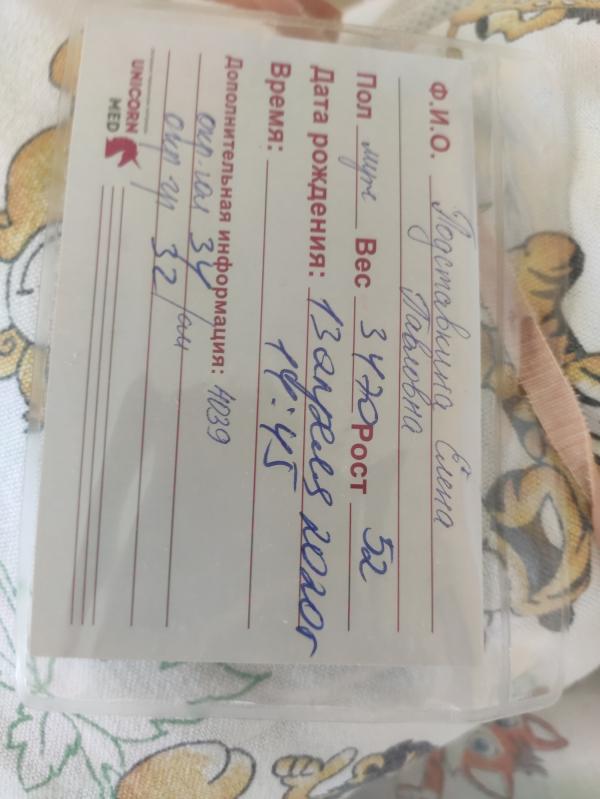 Ф.И.О. Подставкина Елена
Павловна
Пол муж Вес 3470 Рост 52
Дата рождения: 13 апреля 2020г
Время: 14:45
Дополнительная информация: 4039
окр. гол 34
окр. гр 32 /см
UNICORN
MED